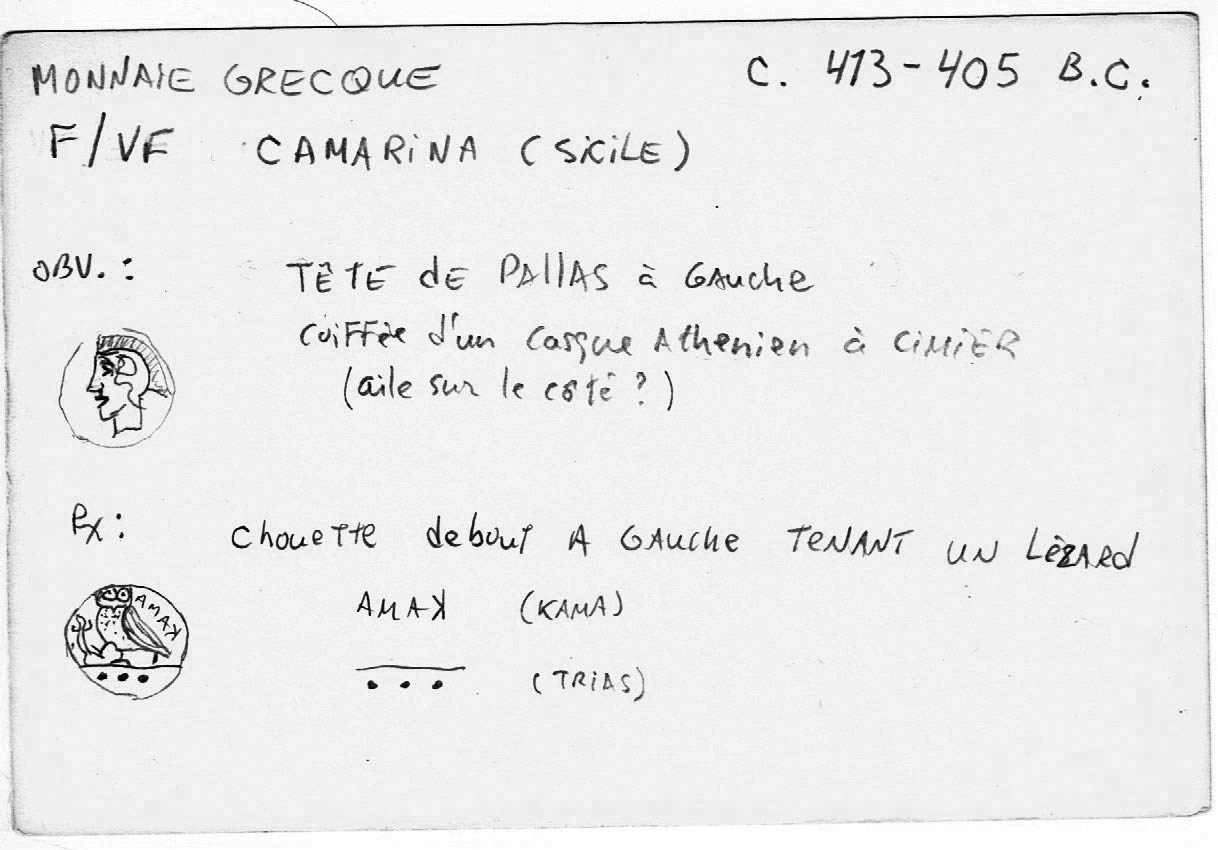 MONNAIE GRECQUE C. 413-405 B.C.
F/VF CAMARINA (SICILE)
OBV. : TÊTE de PALLAS à GAuche
coiffée d'un casque Athenien à CIMIER
(aile sur le coté ?)
Rx: chouette debout A GAuche TENANT UN LèZARd
AMAK AMAK (KAMA)
• • • • • • (TRIAS)